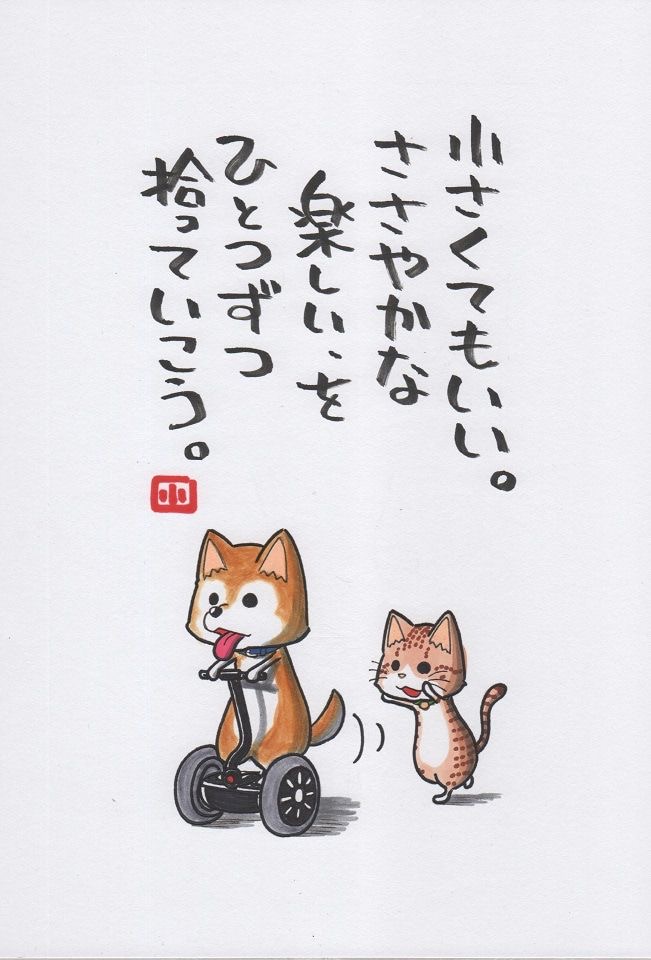 小さくてもいい。
ささやかな
楽しい、を
ひとつずつ
拾っていこう。
小